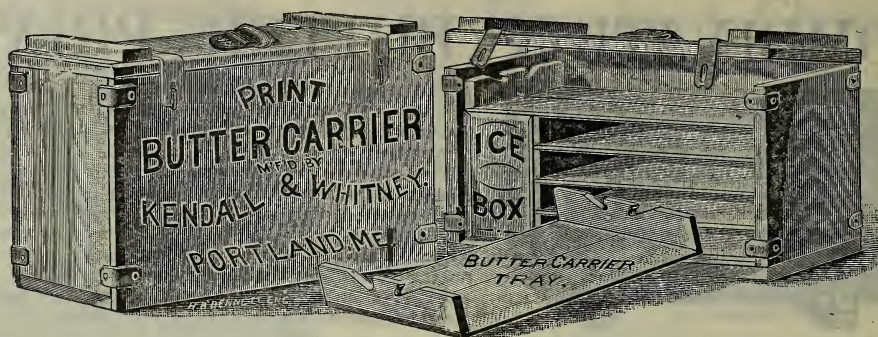 PRINT
BUTTER CARRIER
M'F'D BY
KENDALL & WHITNEY.
PORTLAND, ME.
ICE
BOX
BUTTER CARRIER
TRAY.